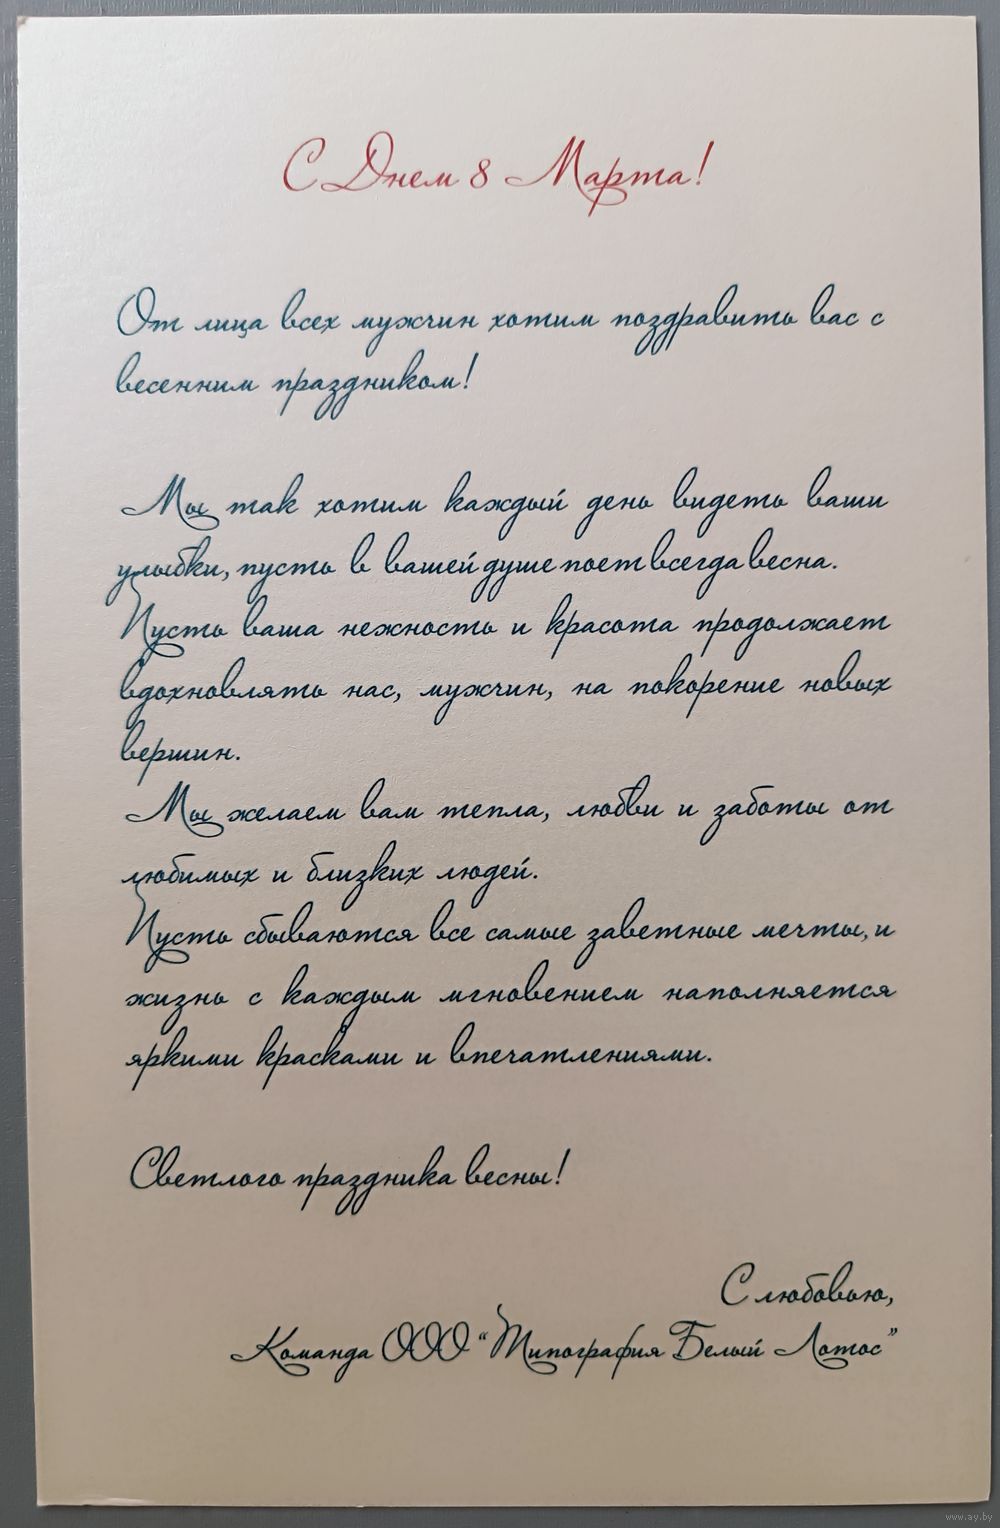 С Днем 8 Марта!
От лица всех мужчин хотим поздравить вас с
весенним праздником!
Мы так хотим каждый день видеть ваши
улыбки, пусть в вашей душе поет всегда весна.
Пусть ваша нежность и красота продолжает
вдохновлять нас, мужчин, на покорение новых
вершин.
Мы желаем вам тепла, любви и заботы от
любимых и близких людей.
Пусть сбываются все самые заветные мечты, и
жизнь с каждым мгновением наполняется
яркими красками и впечатлениями.
Светлого праздника весны!
С любовью,
Команда ООО “Типография Белый Лотос”
www.ay.by